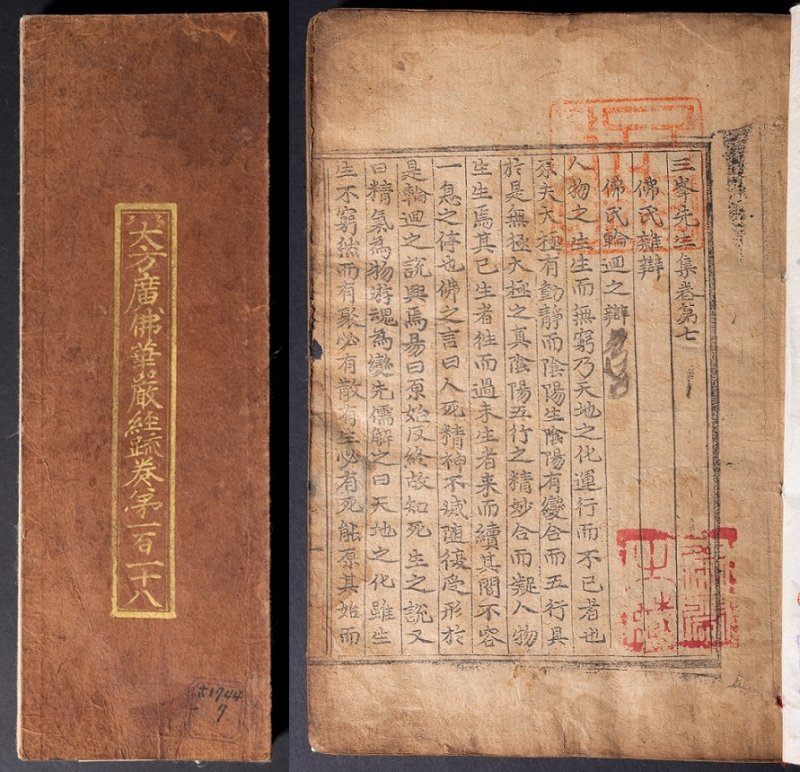 大方廣佛華嚴経䟽卷苐一百一十八
1744
7
三峯先生集卷第七
佛氏雜辯
佛氏輪迴之辯
人物之生生而無窮乃天地之化運行而不已者也
原夫大極有動靜而陰陽生陰陽有變合而五行具
於是無極大極之真陰陽五行之精妙合而凝人物
生生焉其已生者往而過未生者来而續其間不容
一息之停也佛之言曰人死精神不滅随復受形於
是輪迴之說興焉易曰原始反終故知死生之說又
曰精氣為物游魂為變先儒解之曰天地之化雖生
生不窮然而有聚必有散有生必有死能原其始而